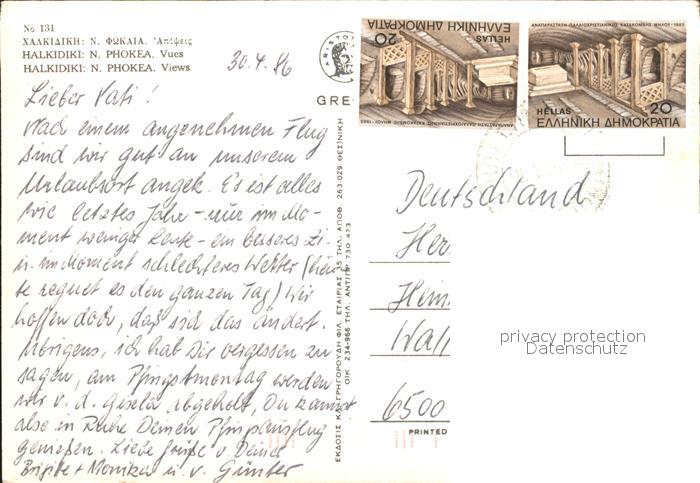 No 131
ΧΑΛΚΙΔΙΚΗ: Ν. ΦΩΚΑΙΑ. Ἀπόψεις
HALKIDIKI: N. PHOKEA. Vues
HALKIDIKI: N. PHOKEA. Views
30.4.86
Lieber Vati!
Nach einem angenehmen Flug
sind wir gut an unserem
Urlaubsort angek. Es ist alles
wie letztes Jahr - nur im Mo-
ment weniger Leute - ein besseres Zi-
u. im Moment schlechteres Wetter (heu-
te regnet es den ganzen Tag) Wir
hoffen doch, daß sich das ändert.
Übrigens, ich hab Dir vergessen zu
sagen, am Pfingstmontag werden
wir v. d. Gisela abgeholt, Du kannst
also in Ruhe Deinen Pfingstausflug
genießen. Liebe Grüße v. Deiner
Brigitte + Monika u. v. Günter
GRE
ΕΚΔΟΣΙΣ ΓΡΗΓΟΡΟΥΔΗ ΦΙΛ. ΕΤΑΙΡΙΑΣ 35 ΤΗΛ. ΑΠΟΘ 263.029 ΘΕΣ)ΝΙΚΗ
ΟΙΚ. 234-966 ΤΗΛ. ΑΝΤΙΠΡ. 730 473
HELLAS
ΕΛΛΗΝΙΚΗ ΔΗΜΟΚΡΑΤΙΑ
20
ΑΝΑΠΑΡΑΣΤΑΣΗ ΠΑΛΑΙΟΧΡΙΣΤΙΑΝΙΚΗΣ ΚΑΤΑΚΟΜΒΗΣ ΜΗΛΟΥ - 1985
ΑΝΑΠΑΡΑΣΤΑΣΗ ΠΑΛΑΙΟΧΡΙΣΤΙΑΝΙΚΗΣ ΚΑΤΑΚΟΜΒΗΣ ΜΗΛΟΥ - 1985
HELLAS
20
ΕΛΛΗΝΙΚΗ ΔΗΜΟΚΡΑΤΙΑ
Deutschland
Her
Hein
Wall
privacy protection
Datenschutz
6500
PRINTED